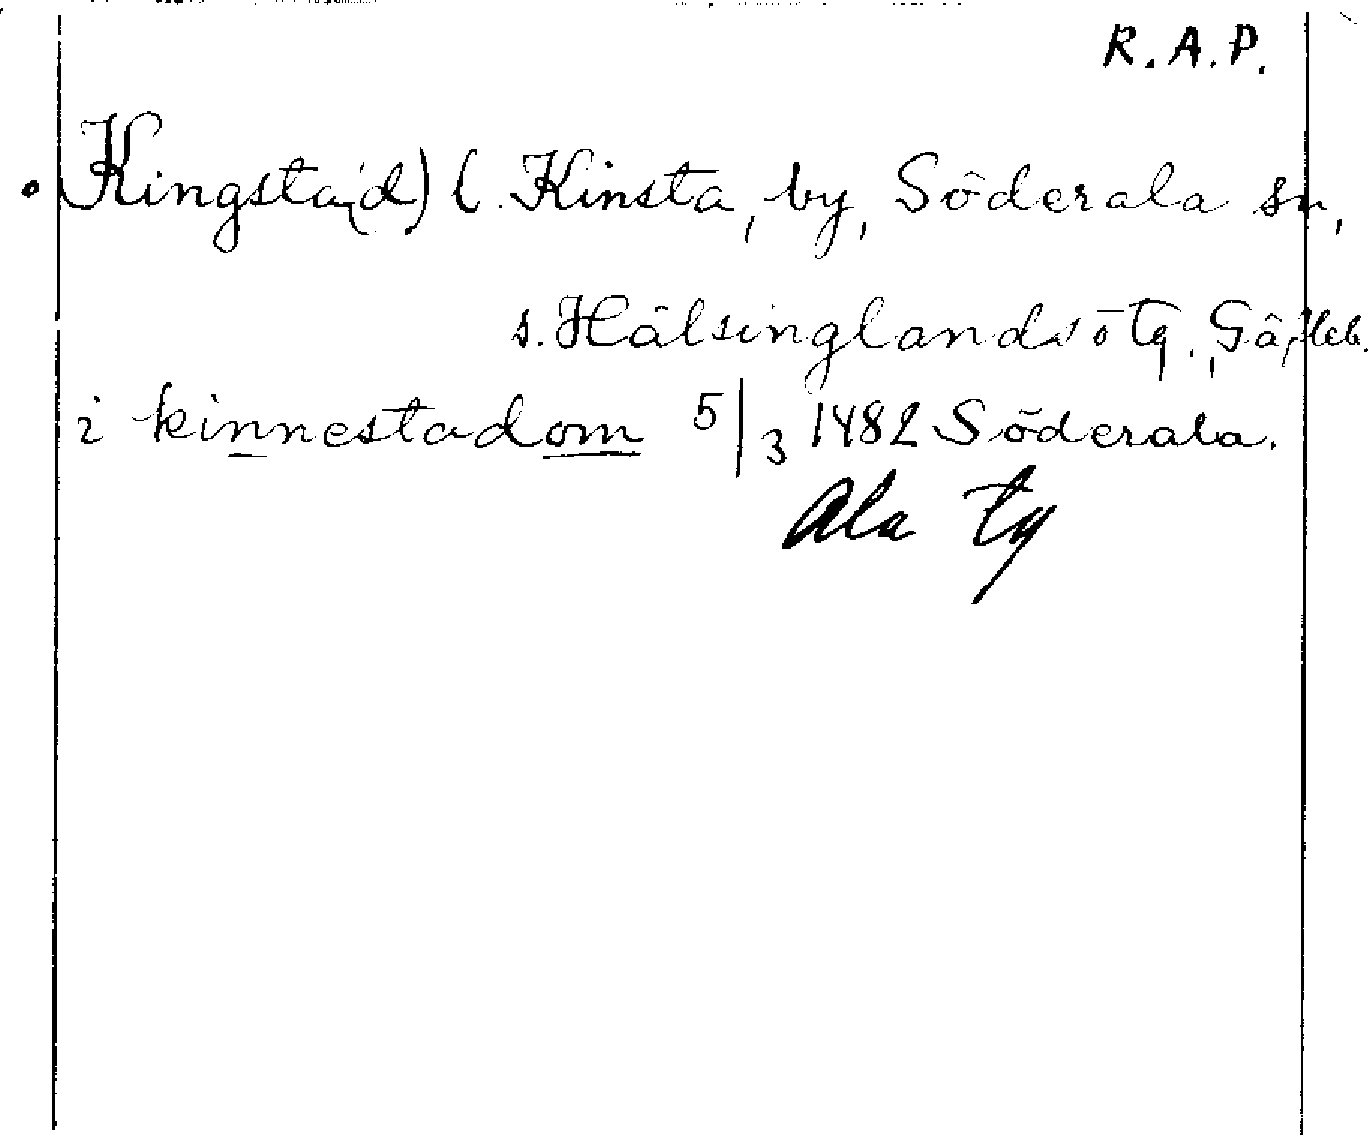 R.A.P.
Kingsta(d) (. Kinsta, by, Söderala sn,
s. Hälsinglands ö tg., Gäfleb.
i kinnestadom 5/3 1482 Söderala.
Ala tg